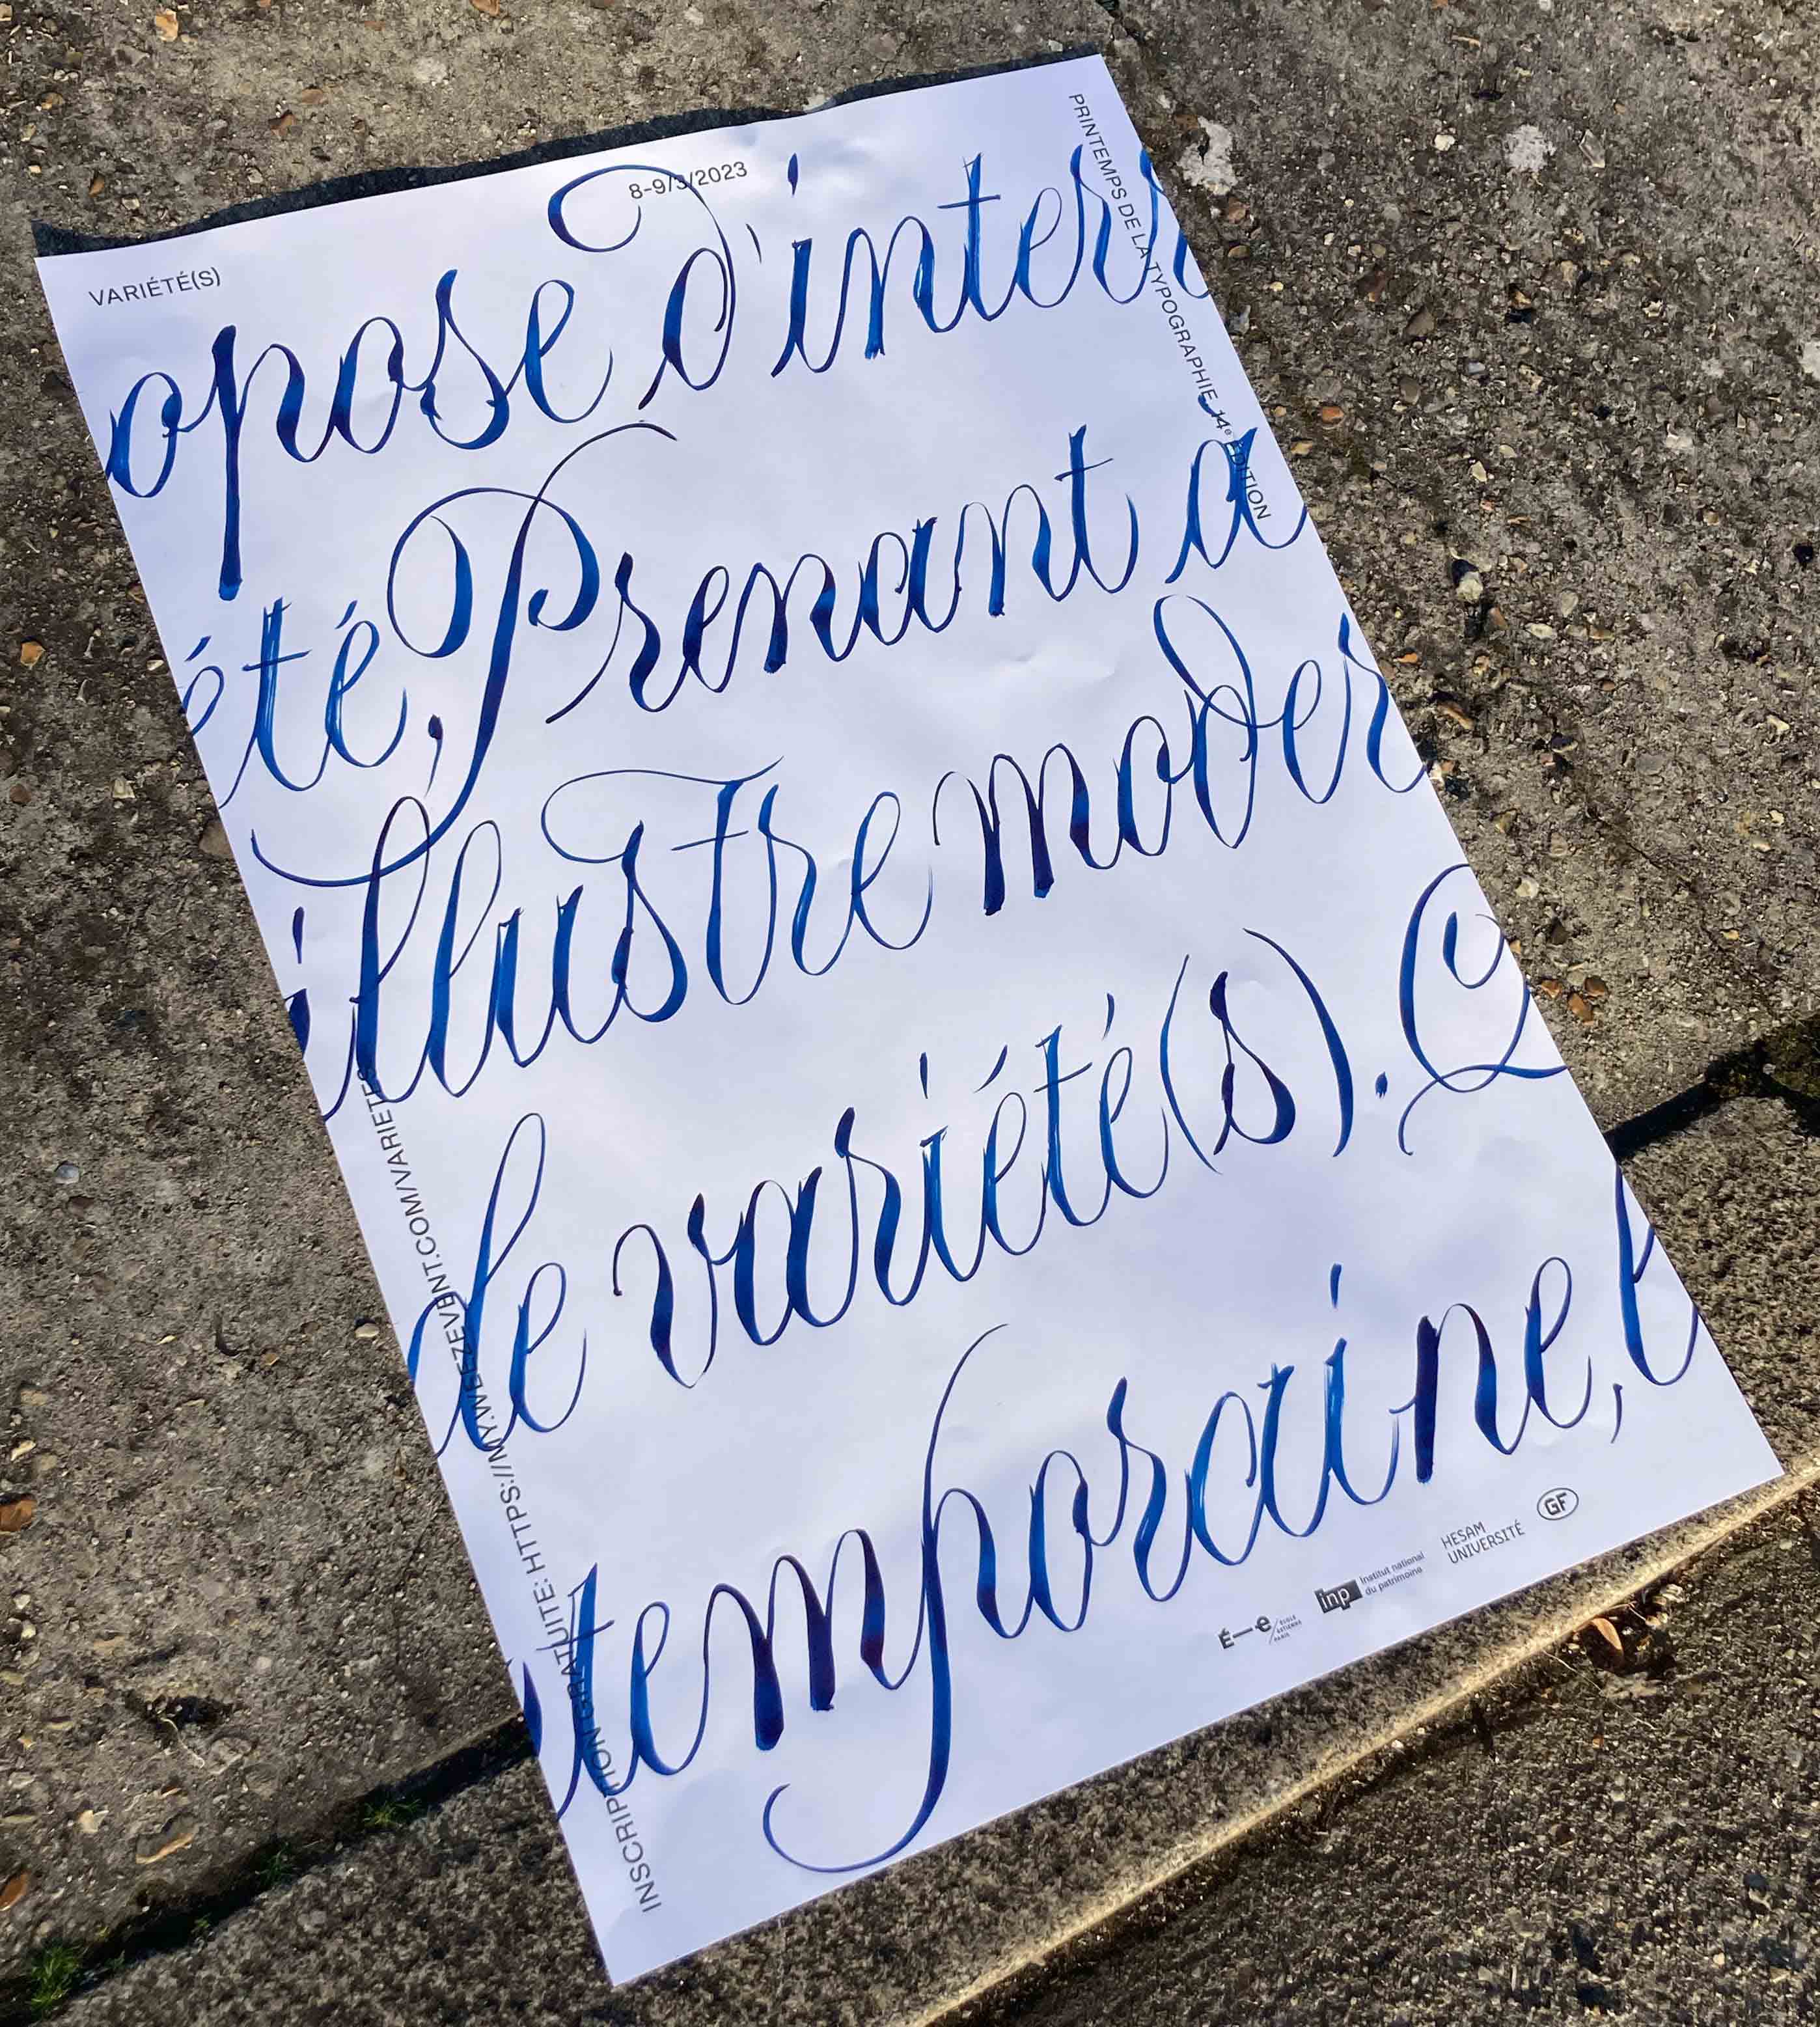 VARIÉTÉ(S)
8-9/3/2023
PRINTEMPS DE LA TYPOGRAPHIE 14e ÉDITION
opose d'interr
été, Prenant a
illustre moder
de variété(s). Q
temporaine, l
INSCRIPTION GRATUITE: HTTPS://MY.WEEZEVENT.COM/VARIETES
É—e ÉCOLE ESTIENNE PARIS
inp institut national
du patrimoine
HESAM
UNIVERSITÉ
GF